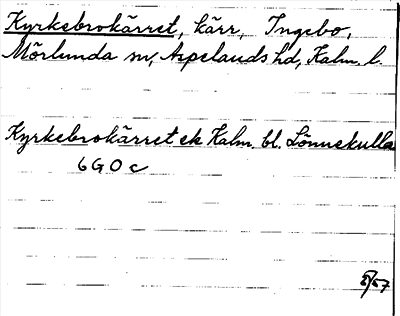 Kyrkebrokärret, kärr, Ingebo,
Mörlunda sn, Aspelands hd, Kalm. l.
Kyrkebrokärret ek Kalm. bl. Lönnekulla
6G0c